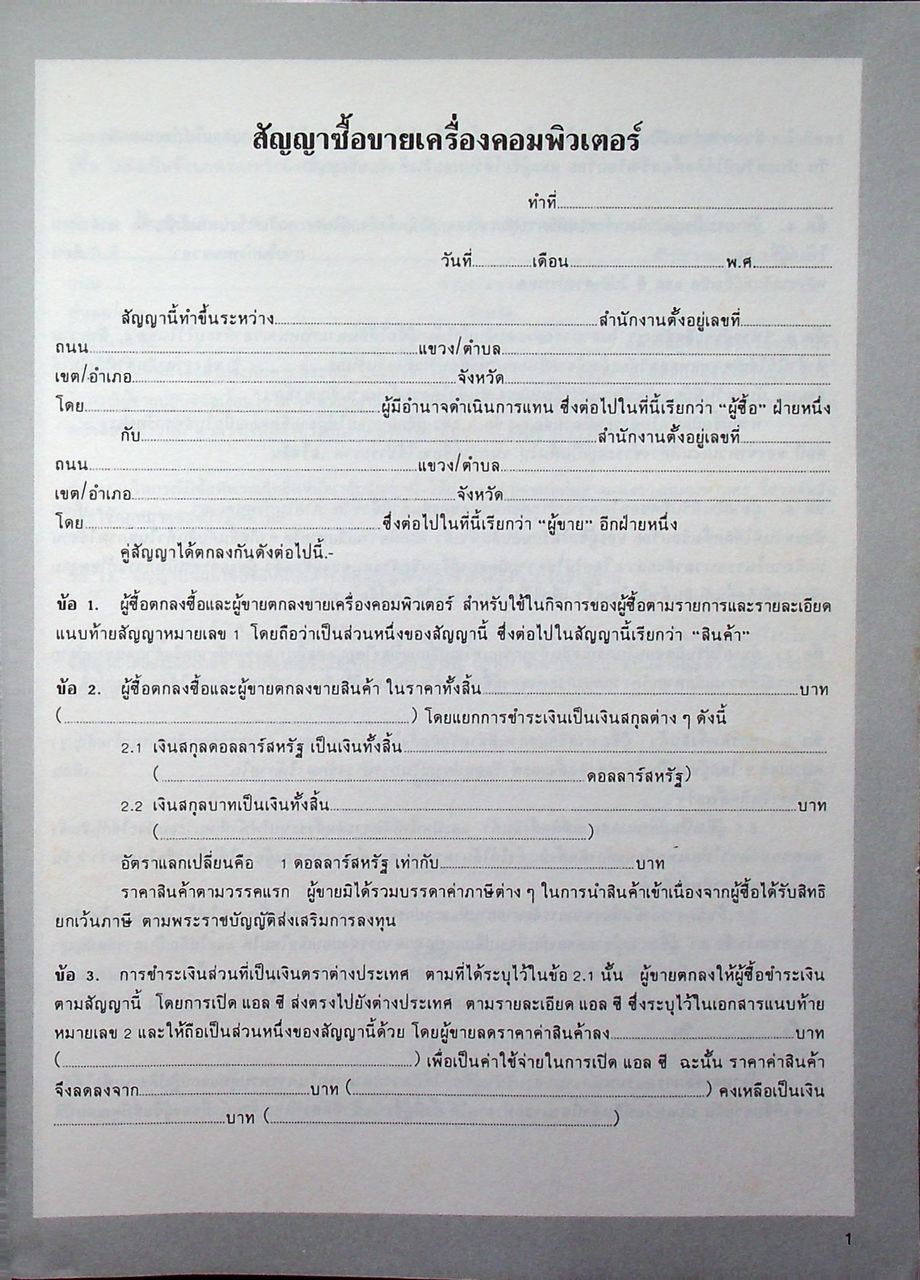 สัญญาซื้อขายเครื่องคอมพิวเตอร์
ทำที่
วันที่ เดือน พ.ศ.
สัญญานี้ทำขึ้นระหว่าง สำนักงานตั้งอยู่เลขที่
ถนน แขวง/ตำบล
เขต/อำเภอ จังหวัด
โดย ผู้มีอำนาจดำเนินการแทน ซึ่งต่อไปในที่นี้เรียกว่า “ผู้ซื้อ” ฝ่ายหนึ่ง
กับ สำนักงานตั้งอยู่เลขที่
ถนน แขวง/ตำบล
เขต/อำเภอ จังหวัด
โดย ซึ่งต่อไปในที่นี้เรียกว่า “ผู้ขาย” อีกฝ่ายหนึ่ง
คู่สัญญาได้ตกลงกันดังต่อไปนี้.-
ข้อ 1. ผู้ซื้อตกลงซื้อและผู้ขายตกลงขายเครื่องคอมพิวเตอร์ สำหรับใช้ในกิจการของผู้ซื้อตามรายการและรายละเอียด
แนบท้ายสัญญาหมายเลข 1 โดยถือว่าเป็นส่วนหนึ่งของสัญญานี้ ซึ่งต่อไปในสัญญานี้เรียกว่า “สินค้า”
ข้อ 2. ผู้ซื้อตกลงซื้อและผู้ขายตกลงขายสินค้า ในราคาทั้งสิ้น บาท
( ) โดยแยกการชำระเงินเป็นเงินสกุลต่าง ๆ ดังนี้
2.1 เงินสกุลดอลลาร์สหรัฐ เป็นเงินทั้งสิ้น
( ดอลลาร์สหรัฐ)
2.2 เงินสกุลบาทเป็นเงินทั้งสิ้น บาท
( )
อัตราแลกเปลี่ยนคือ 1 ดอลลาร์สหรัฐ เท่ากับ บาท
ราคาสินค้าตามวรรคแรก ผู้ขายมิได้รวมบรรดาค่าภาษีต่าง ๆ ในการนำสินค้าเข้าเนื่องจากผู้ซื้อได้รับสิทธิ
ยกเว้นภาษี ตามพระราชบัญญัติส่งเสริมการลงทุน
ข้อ 3. การชำระเงินส่วนที่เป็นเงินตราต่างประเทศ ตามที่ได้ระบุไว้ในข้อ 2.1 นั้น ผู้ขายตกลงให้ผู้ซื้อชำระเงิน
ตามสัญญานี้ โดยการเปิด แอล ซี ส่งตรงไปยังต่างประเทศ ตามรายละเอียด แอล ซี ซึ่งระบุไว้ในเอกสารแนบท้าย
หมายเลข 2 และให้ถือเป็นส่วนหนึ่งของสัญญานี้ด้วย โดยผู้ขายลดราคาค่าสินค้าลง บาท
( ) เพื่อเป็นค่าใช้จ่ายในการเปิด แอล ซี ฉะนั้น ราคาค่าสินค้า
จึงลดลงจาก บาท ( ) คงเหลือเป็นเงิน
บาท ( )
1